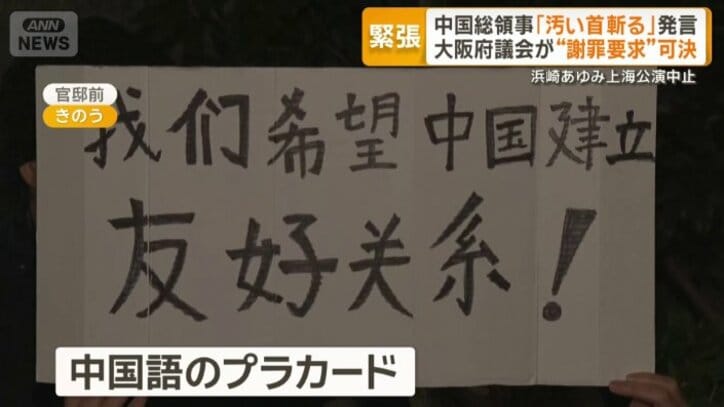 ANN
NEWS
緊張
中国総領事「汚い首斬る」発言
大阪府議会が“謝罪要求”可決
浜崎あゆみ上海公演中止
官邸前
きのう
我们希望中国建立
友好关系!
中国語のプラカード